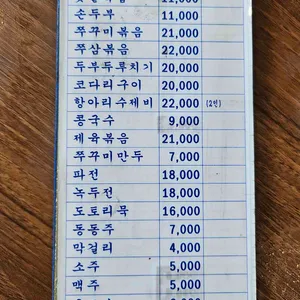 손두부 11,000
쭈꾸미볶음 21,000
쭈삼볶음 22,000
두부두루치기 20,000
코다리구이 20,000
항아리수제비 22,000 (2인)
콩국수 9,000
제육볶음 21,000
쭈꾸미만두 7,000
파전 18,000
녹두전 18,000
도토리묵 16,000
동동주 7,000
막걸리 4,000
소주 5,000
맥주 5,000